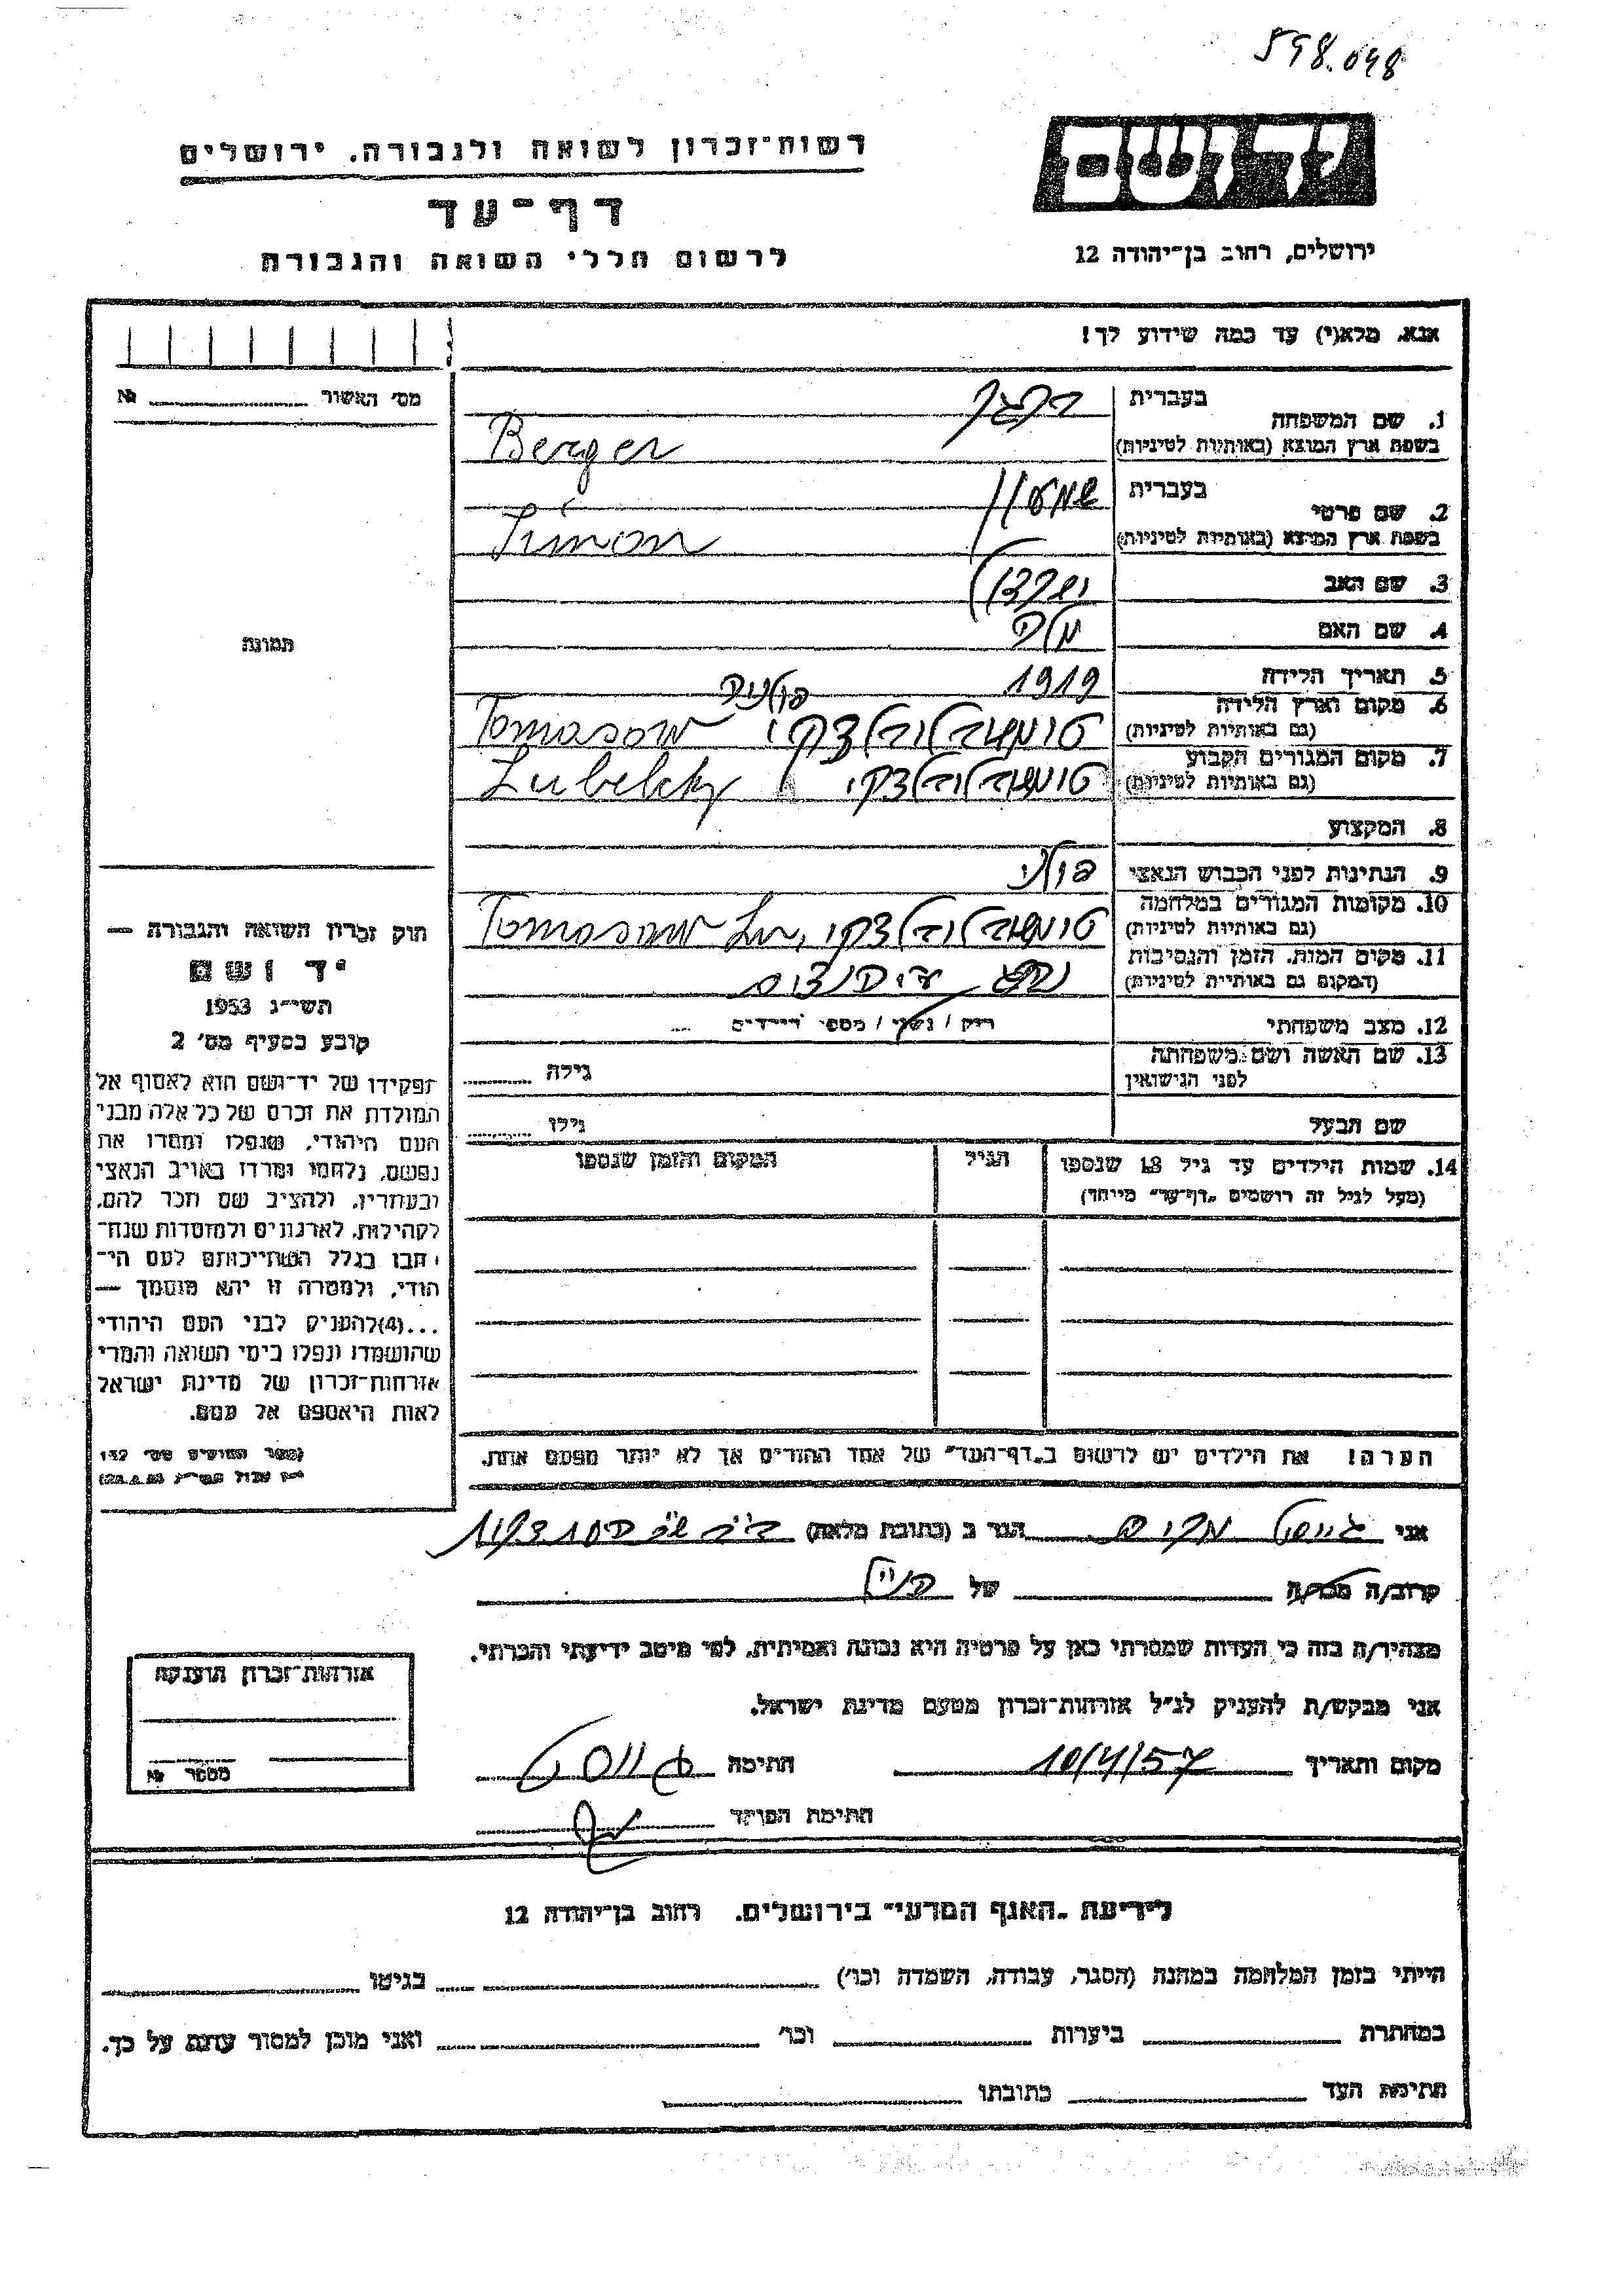 598.048
יד ושם
רשות־זכרון לשואה ולגבורה. ירושלים
דף־עד
ירושלים, רחוב בן־יהודה 12
לרשום חללי השואה והגבורה
אנא, מלא(י) עד כמה שידוע לך!
מס׳ האשור № 
1. שם המשפחה
בעברית ברגר
בשפת ארץ המוצא (באותיות לטיניות) Berger
2. שם פרטי
בעברית
בשפת ארץ המוצא (באותיות לטיניות) Simon
3. שם האב
4. שם האם
5. תאריך הלידה 1919
6. מקום וארץ הלידה פולניה
(גם באותיות לטיניות) Tomasow
7. מקום המגורים הקבוע
(גם באותיות לטיניות) Lubelsky
8. המקצוע
9. הנתינות לפני הכבוש הנאצי פולני
10. מקומות המגורים במלחמה
(גם באותיות לטיניות) Tomasow Lu
11. מקום המות, הזמן והנסיבות
(המקום גם באותיות לטיניות)
12. מצב משפחתי רוק / נשוי / מספר הילדים
13. שם האשה ושם משפחתה
לפני הנישואין גילה
שם הבעל גילו
14. שמות הילדים עד גיל 18 שנספו הגיל המקום והזמן שנספו
(מעל לגיל זה רושמים „דף־עד” מיוחד)
הערה! את הילדים יש לרשום ב„דף־העד” של אחד ההורים אך לא יותר מפעם אחת.
תמונה
חוק זכרון השואה והגבורה —
יד ושם
תשי״ג 1953
קובע בסעיף מס׳ 2
תפקידו של יד־ושם הוא לאסוף אל
המולדת את זכרם של כל אלה מבני
העם היהודי, שנפלו ומסרו את
נפשם, נלחמו ומרדו באויב הנאצי
ובעוזריו, ולהציב שם וזכר להם,
לקהילות, לארגונים ולמוסדות שנח־
רבו בגלל השתייכותם לעם הי־
הודי, ולמטרה זו יהא מוסמך —
...(4)להעניק לבני העם היהודי
שהושמדו ונפלו בימי השואה והמרי
אזרחות־זכרון של מדינת ישראל
לאות היאספם אל עמם.
(ספר החוקים מס׳ 132
אני הגר ב (כתובת מלאה)
קרוב/ה מכר/ה של
מצהיר/ה בזה כי העדות שמסרתי כאן על פרטיה היא נכונה ואמיתית, לפי מיטב ידיעתי והכרתי.
אני מבקש/ת להעניק לנ״ל אזרחות־זכרון מטעם מדינת ישראל.
מקום ותאריך 10/4/57 חתימה
חתימת הפוקד
אזרחות־זכרון הוענקה
מספר №
לידיעת „האגף המדעי” בירושלים. רחוב בן־יהודה 12
הייתי בזמן המלחמה במחנה (הסגר, עבודה, השמדה וכו׳) בגיטו
במחתרת ביערות וכו׳ ואני מוכן למסור עדות על כך.
חתימת העד כתובתו